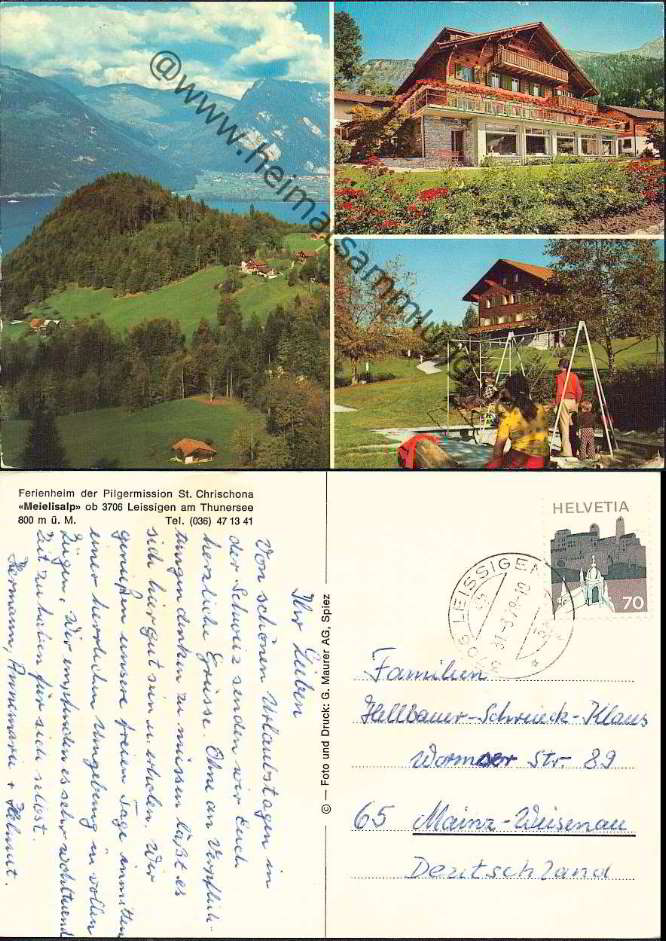 @www.heimatsammlung.de
Ferienheim der Pilgermission St. Chrischona
«Meielisalp» ob 3706 Leissigen am Thunersee
800 m ü. M. Tel. (036) 47 13 41
Ihr Lieben
Von schönen Urlaubstagen in
der Schweiz senden wir Euch
herzliche Grüsse. Ohne an Verpflich-
tungen denken zu müssen läßt es
sich hier gut sein u. erholen. Wir
genießen unsere freien Tage inmitten
einer herrlichen Umgebung in vollen
Zügen. Wir empfinden es sehr wohltuend
Zeit zu haben für sich selbst.
Hermann, Annemarie + Helmut.
© — Foto und Druck: G. Maurer AG, Spiez
HELVETIA
70
3706 LEISSIGEN
Familien
Hellbauer-Schrieck-Klaus
Wormser Str. 89
65 Mainz-Weisenau
Deutschland